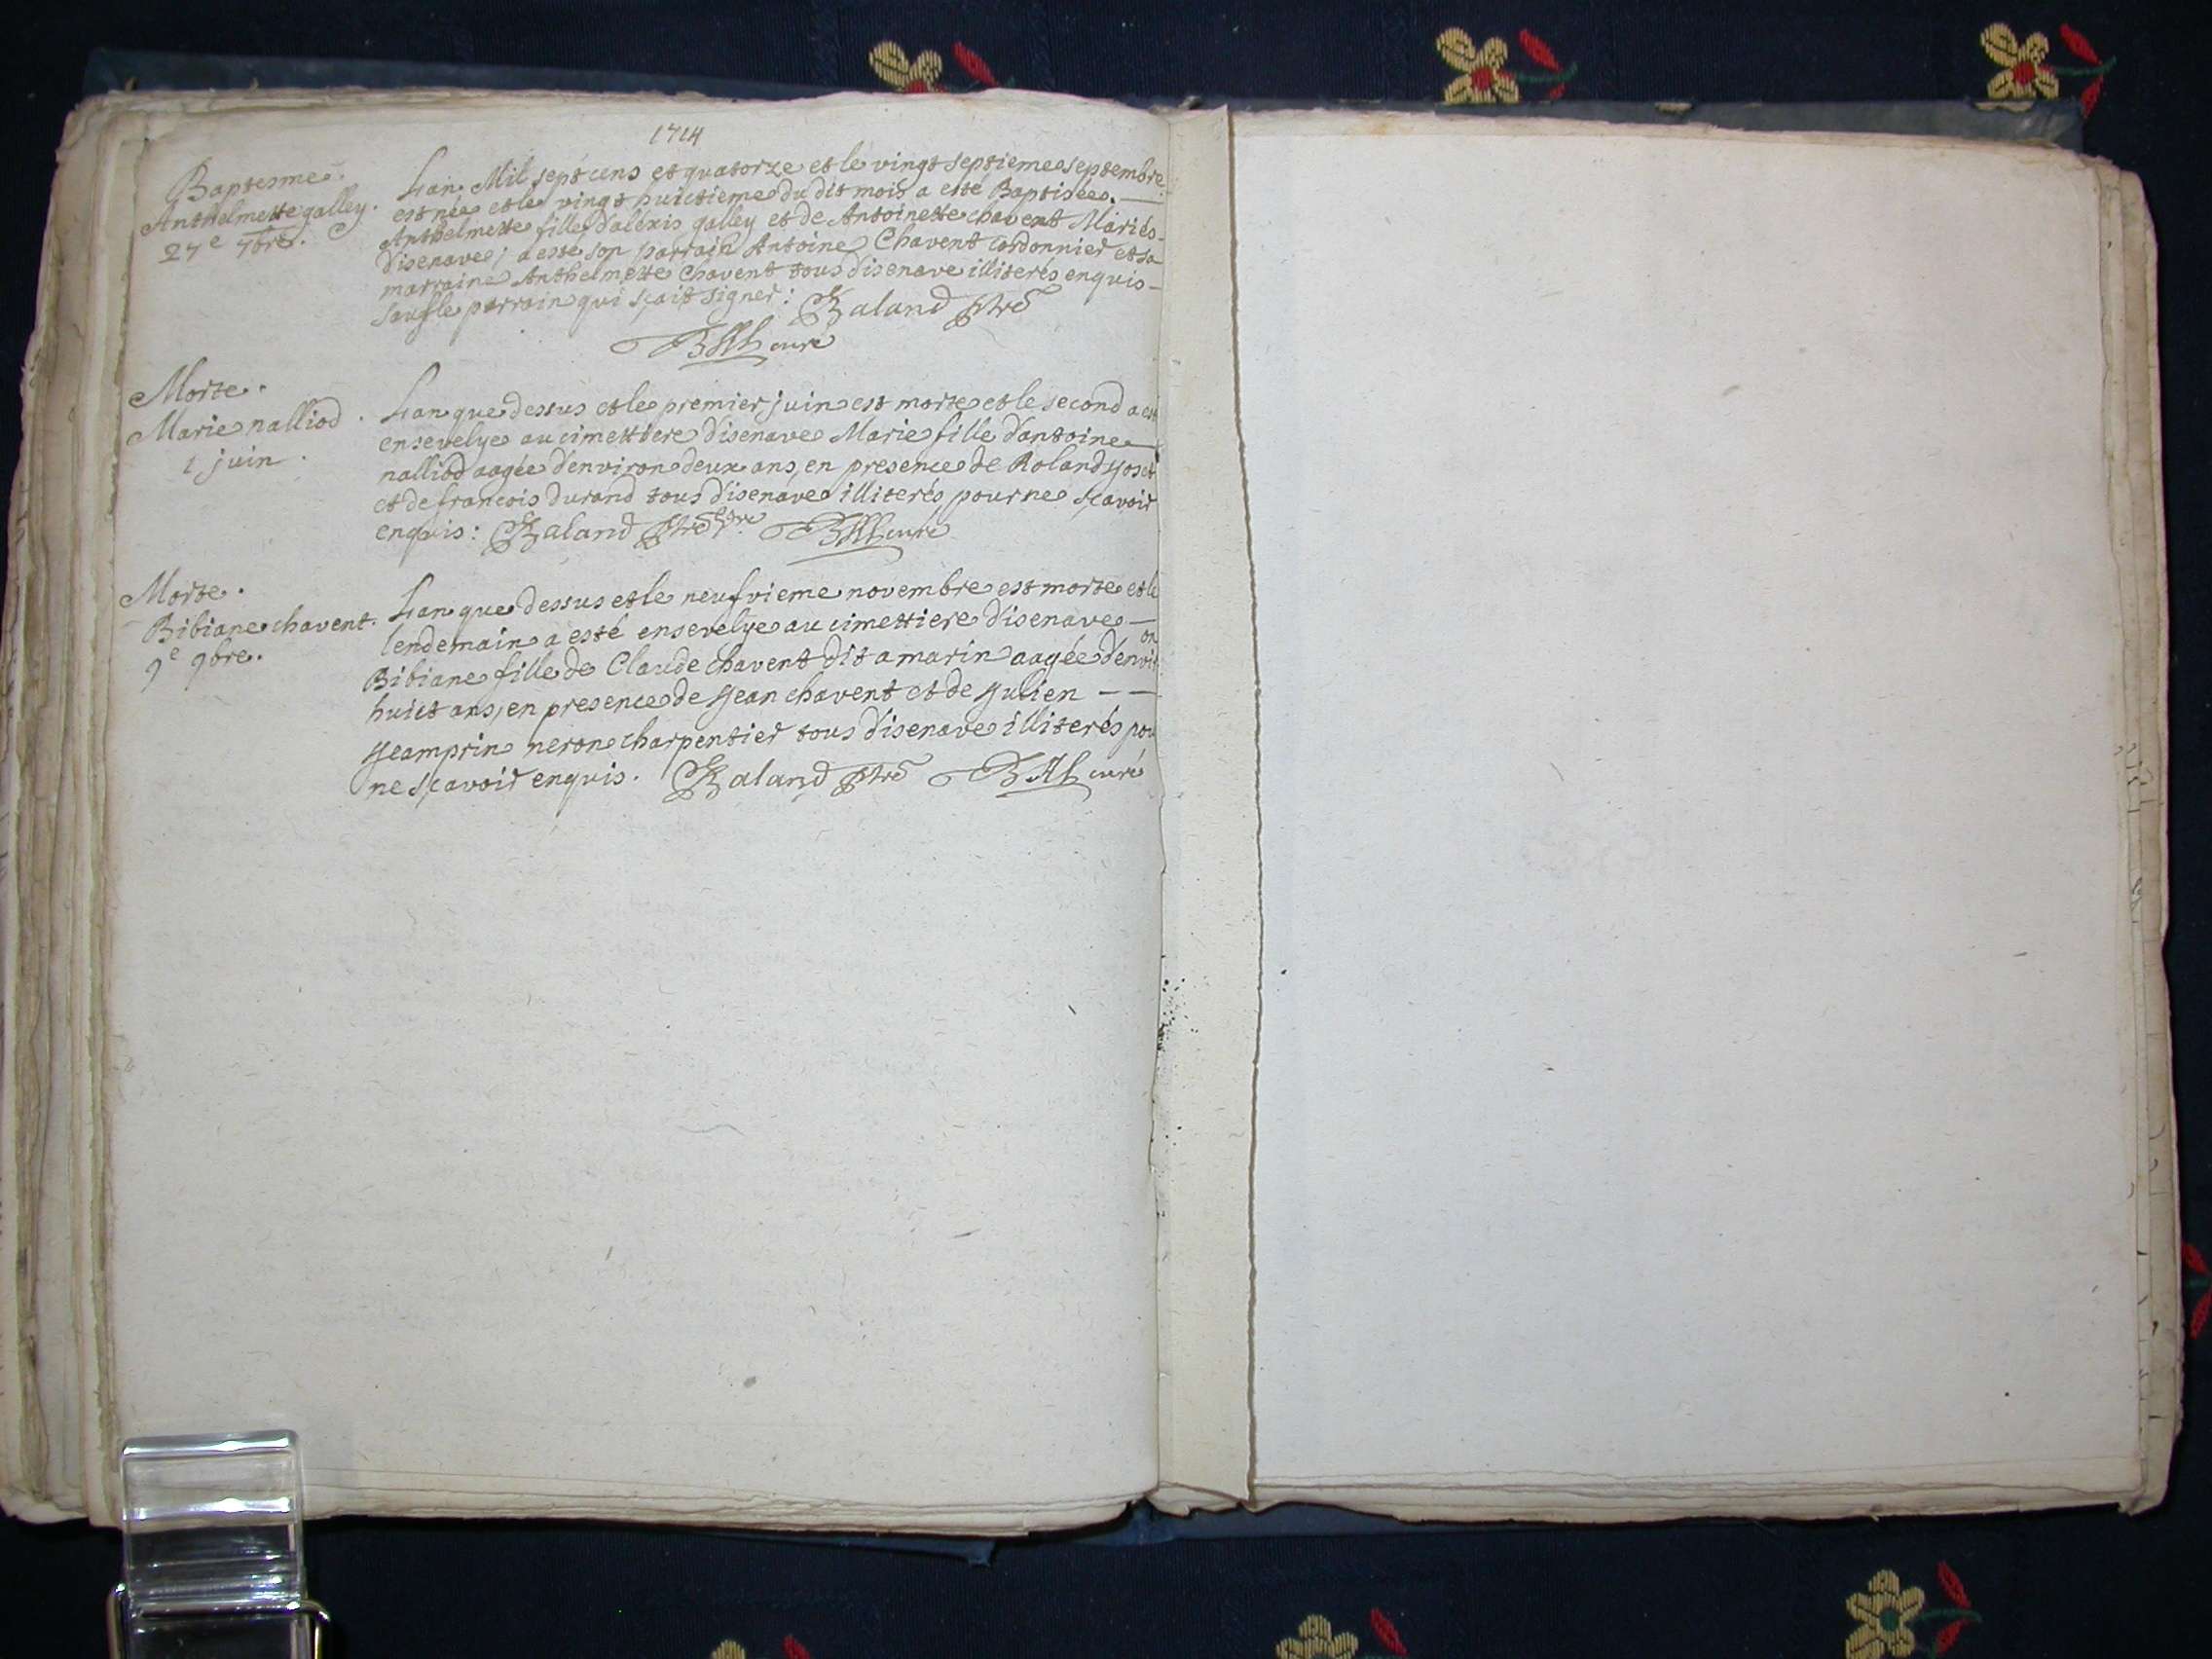 1714
Baptesme.
Anthelmette galley.
27e 7bre.
Lan Mil sept cens et quatorze et le vingt septieme septembre
est née et le vingt huictieme du dit mois a esté Baptisée.
Anthelmette fille dalexis galley et de Antoinette chavent Mariés
disenave; a esté son parrain Antoine Chavent cordonnier et sa
marraine Anthelmette Chavent tous disenave illiterés enquis
sauf le parrain qui sçait signer: Baland ptre
curé
Morte.
Marie nalliod.
1 juin.
Lan que dessus et le premier juin est morte et le second a est
ensevelye au cimettiere disenave Marie fille dantoine
nalliod aagée denviron deux ans, en presence de Roland
et de francois durand tous disenave illiterés pour ne sçavoir
enquis: Baland ptre curé
Morte.
Bibiane chavent.
9e 9bre.
Lan que dessus et le neufvieme novembre est morte et le
lendemain a esté ensevelye au cimettiere disenave
Bibiane fille de Claude chavent dit amarin aagée denviron
huict ans, en presence de Jean chavent et de Julien
Jeamprin neron charpentier tous disenave illiterés pou
ne sçavoir enquis. Baland ptre curé